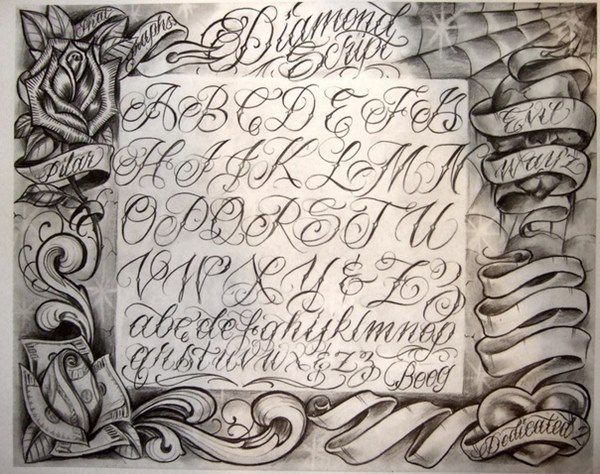 Diamond
Script
Pilar
A B C D E F G
H I J K L M N
O P Q R S T U
V W X Y & Z Z
abcdefghijklmnop
qrstuvwxyzz
Boog
Evil
Wayz
Dedicated 2